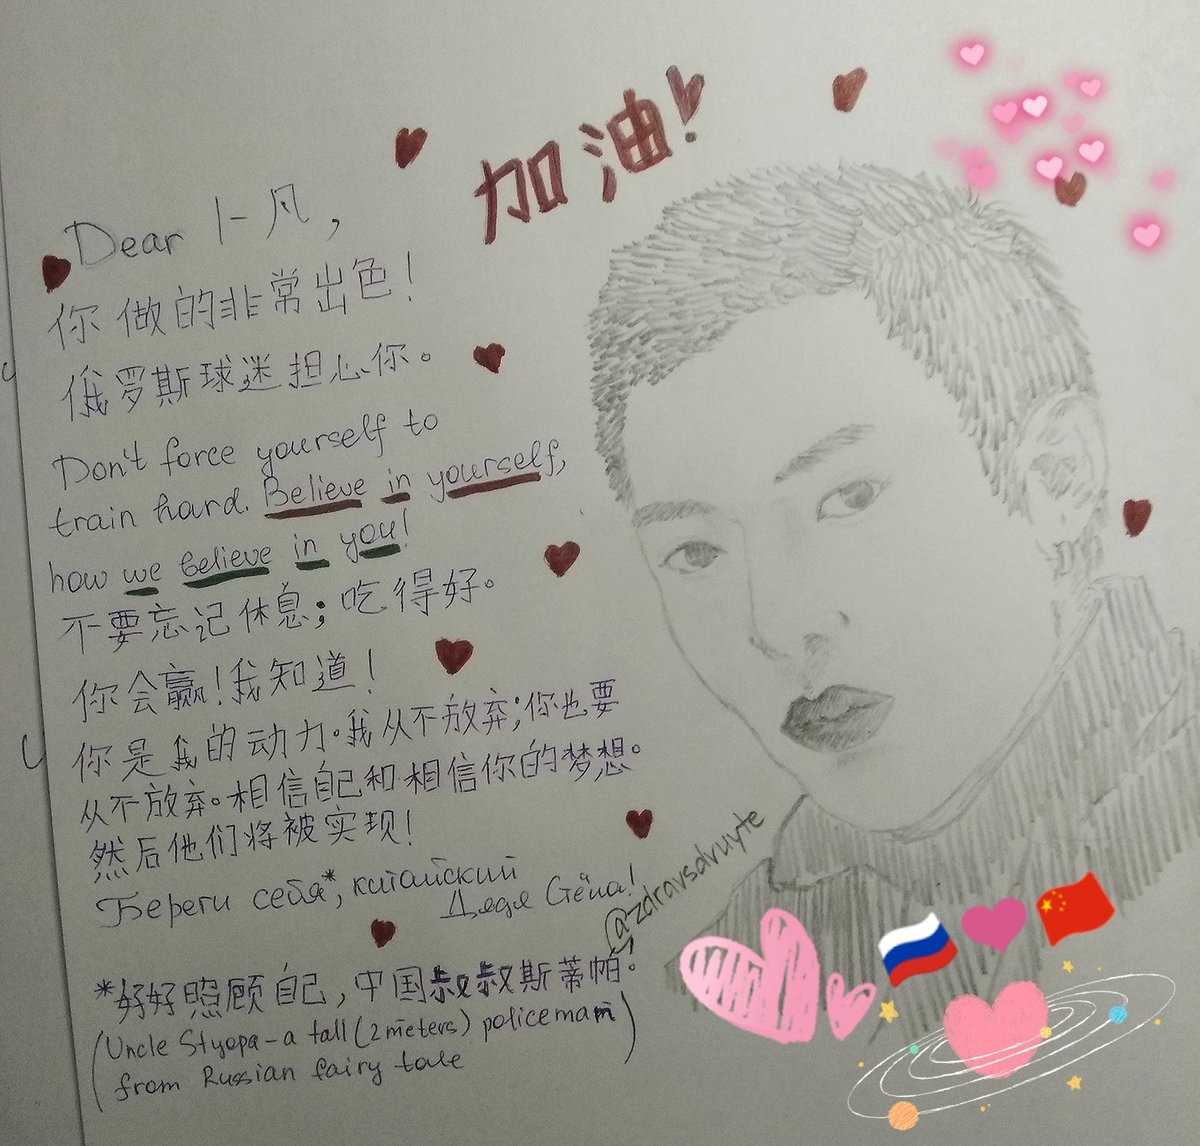 加油!
Dear 卜凡,
你做的非常出色!
俄罗斯球迷担心你。
Don't force yourself to
train hard. Believe in yourself,
how we believe in you!
不要忘记休息; 吃得好。
你会赢!我知道!
你是我的动力。我从不放弃;你也要
从不放弃。相信自己和相信你的梦想。
然后他们将被实现!
Береги себя*, китайский
Дядя Стёпа!
@zdravsdvuyte
*好好照顾自己, 中国叔叔斯蒂帕。
(Uncle Styopa - a tall (2 meters) policeman
from Russian fairy tale)